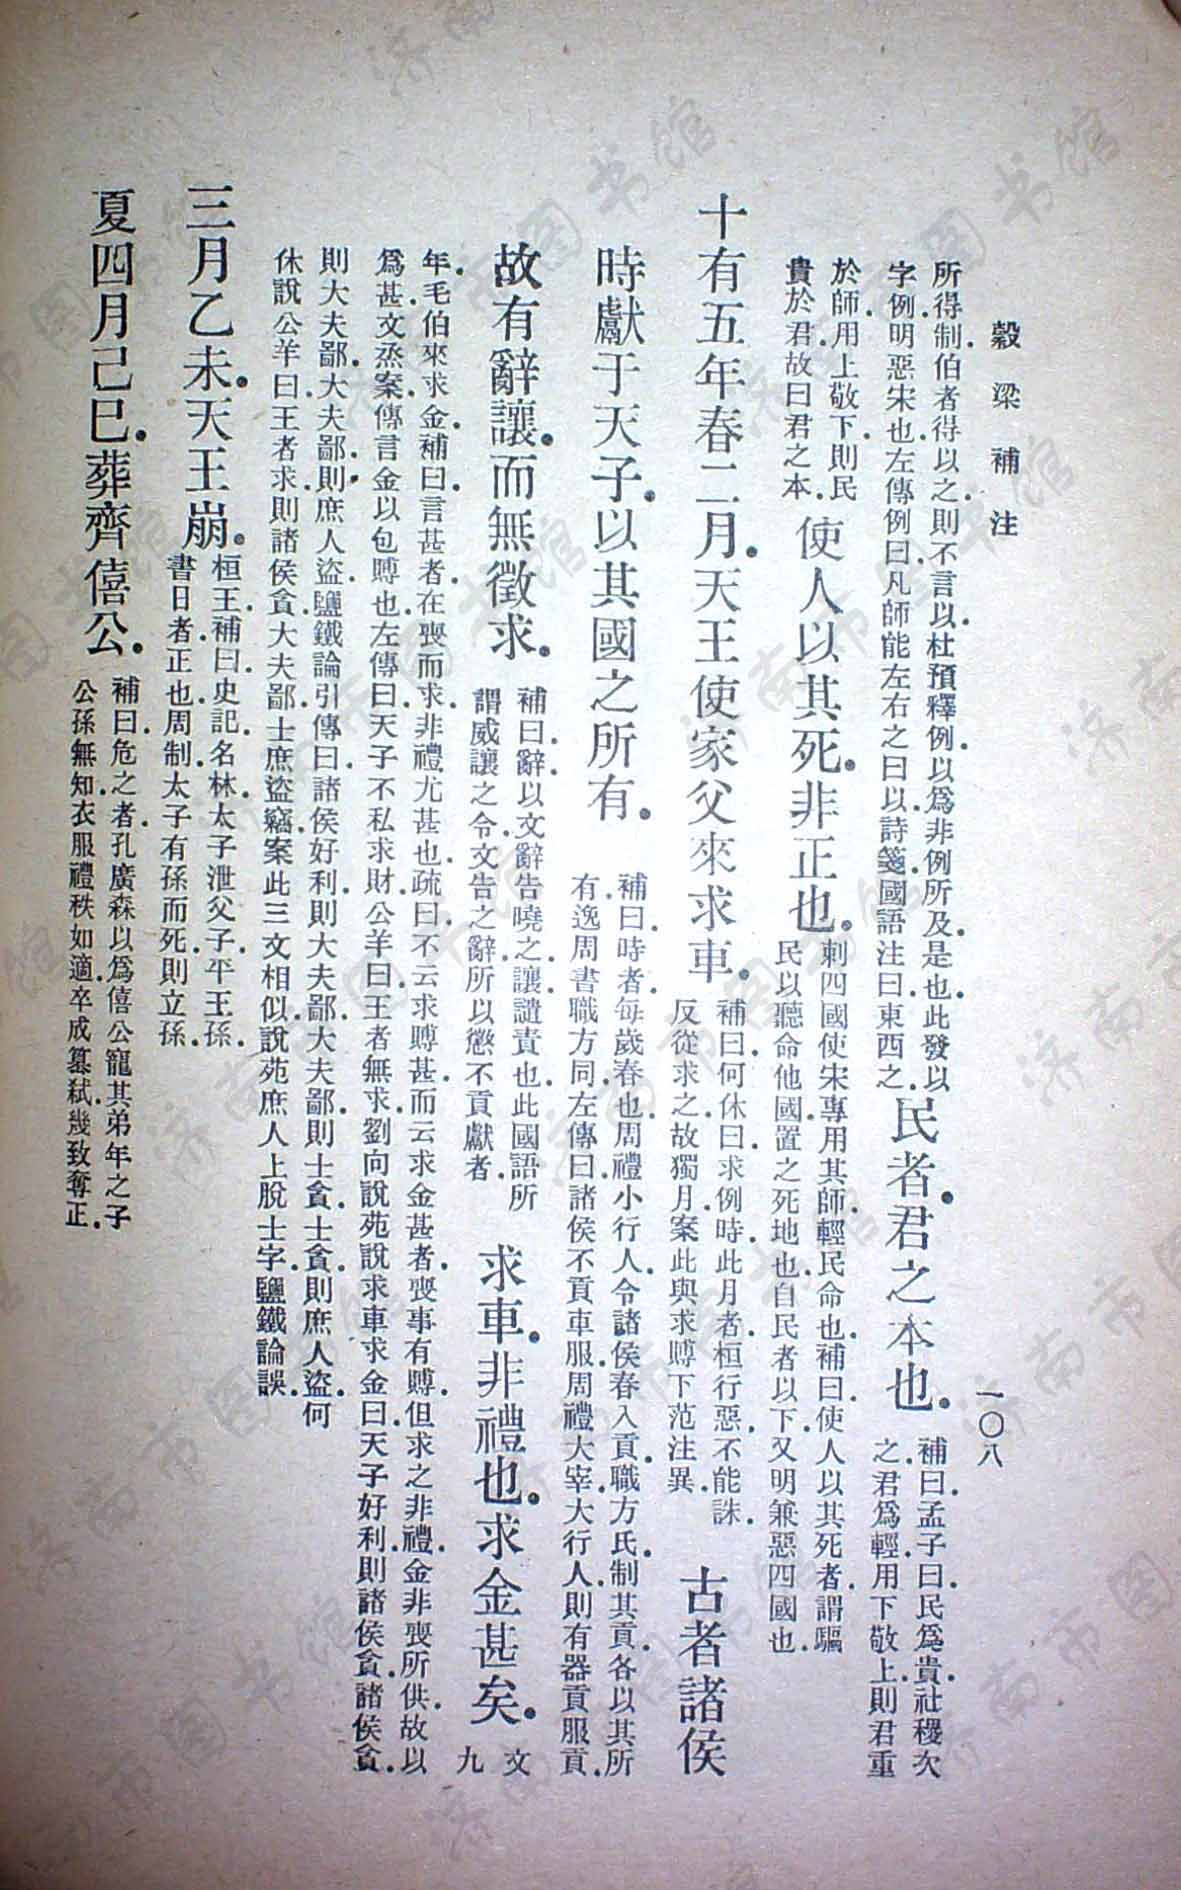 穀梁補注
一〇八
所得制伯者得以之則不言以杜預釋例以爲非例所及是也此發以
字例明惡宋也左傳例曰凡師能左右之曰以詩箋國語注曰東西之
民者君之本也
補曰孟子曰民爲貴社稷次
之君爲輕用下敬上則君重
於師用上敬下則民
貴於君故曰君之本
使人以其死非正也
刺四國使宋專用其師輕民命也補曰使人以其死者謂驅
民以聽命他國置之死地也自民者以下又明兼惡四國也
十有五年春二月天王使家父來求車
補曰何休曰求例時此月者桓行惡不能誅
反從求之故獨月案此與求賻下范注異
古者諸侯
時獻于天子以其國之所有
補曰時者每歲春也周禮小行人令諸侯春入貢職方氏制其貢各以其所
有逸周書職方同左傳曰諸侯不貢車服周禮大宰大行人則有器貢服貢
故有辭讓而無徵求
補曰辭以文辭告曉之讓譴責也此國語所
謂威讓之令文告之辭所以懲不貢獻者
求車非禮也求金甚矣
文
九
年毛伯來求金補曰言甚者在喪而求非禮尤甚也疏曰不云求賻甚而云求金甚者喪事有賻但求之非禮金非喪所供故以
爲甚文烝案傳言金以包賻也左傳曰天子不私求財公羊曰王者無求劉向說苑說求車求金曰天子好利則諸侯貪諸侯貪
則大夫鄙大夫鄙則庶人盜鹽鐵論引傳曰諸侯好利則大夫鄙大夫鄙則士貪士貪則庶人盜何
休說公羊曰王者求則諸侯貪大夫鄙士庶盜竊案此三文相似說苑庶人上脫士字鹽鐵論誤
三月乙未天王崩
桓王補曰史記名林太子泄父子平王孫
書日者正也周制太子有孫而死則立孫
夏四月己巳葬齊僖公
補曰危之者孔廣森以爲僖公寵其弟年之子
公孫無知衣服禮秩如適卒成篡弑幾致奪正